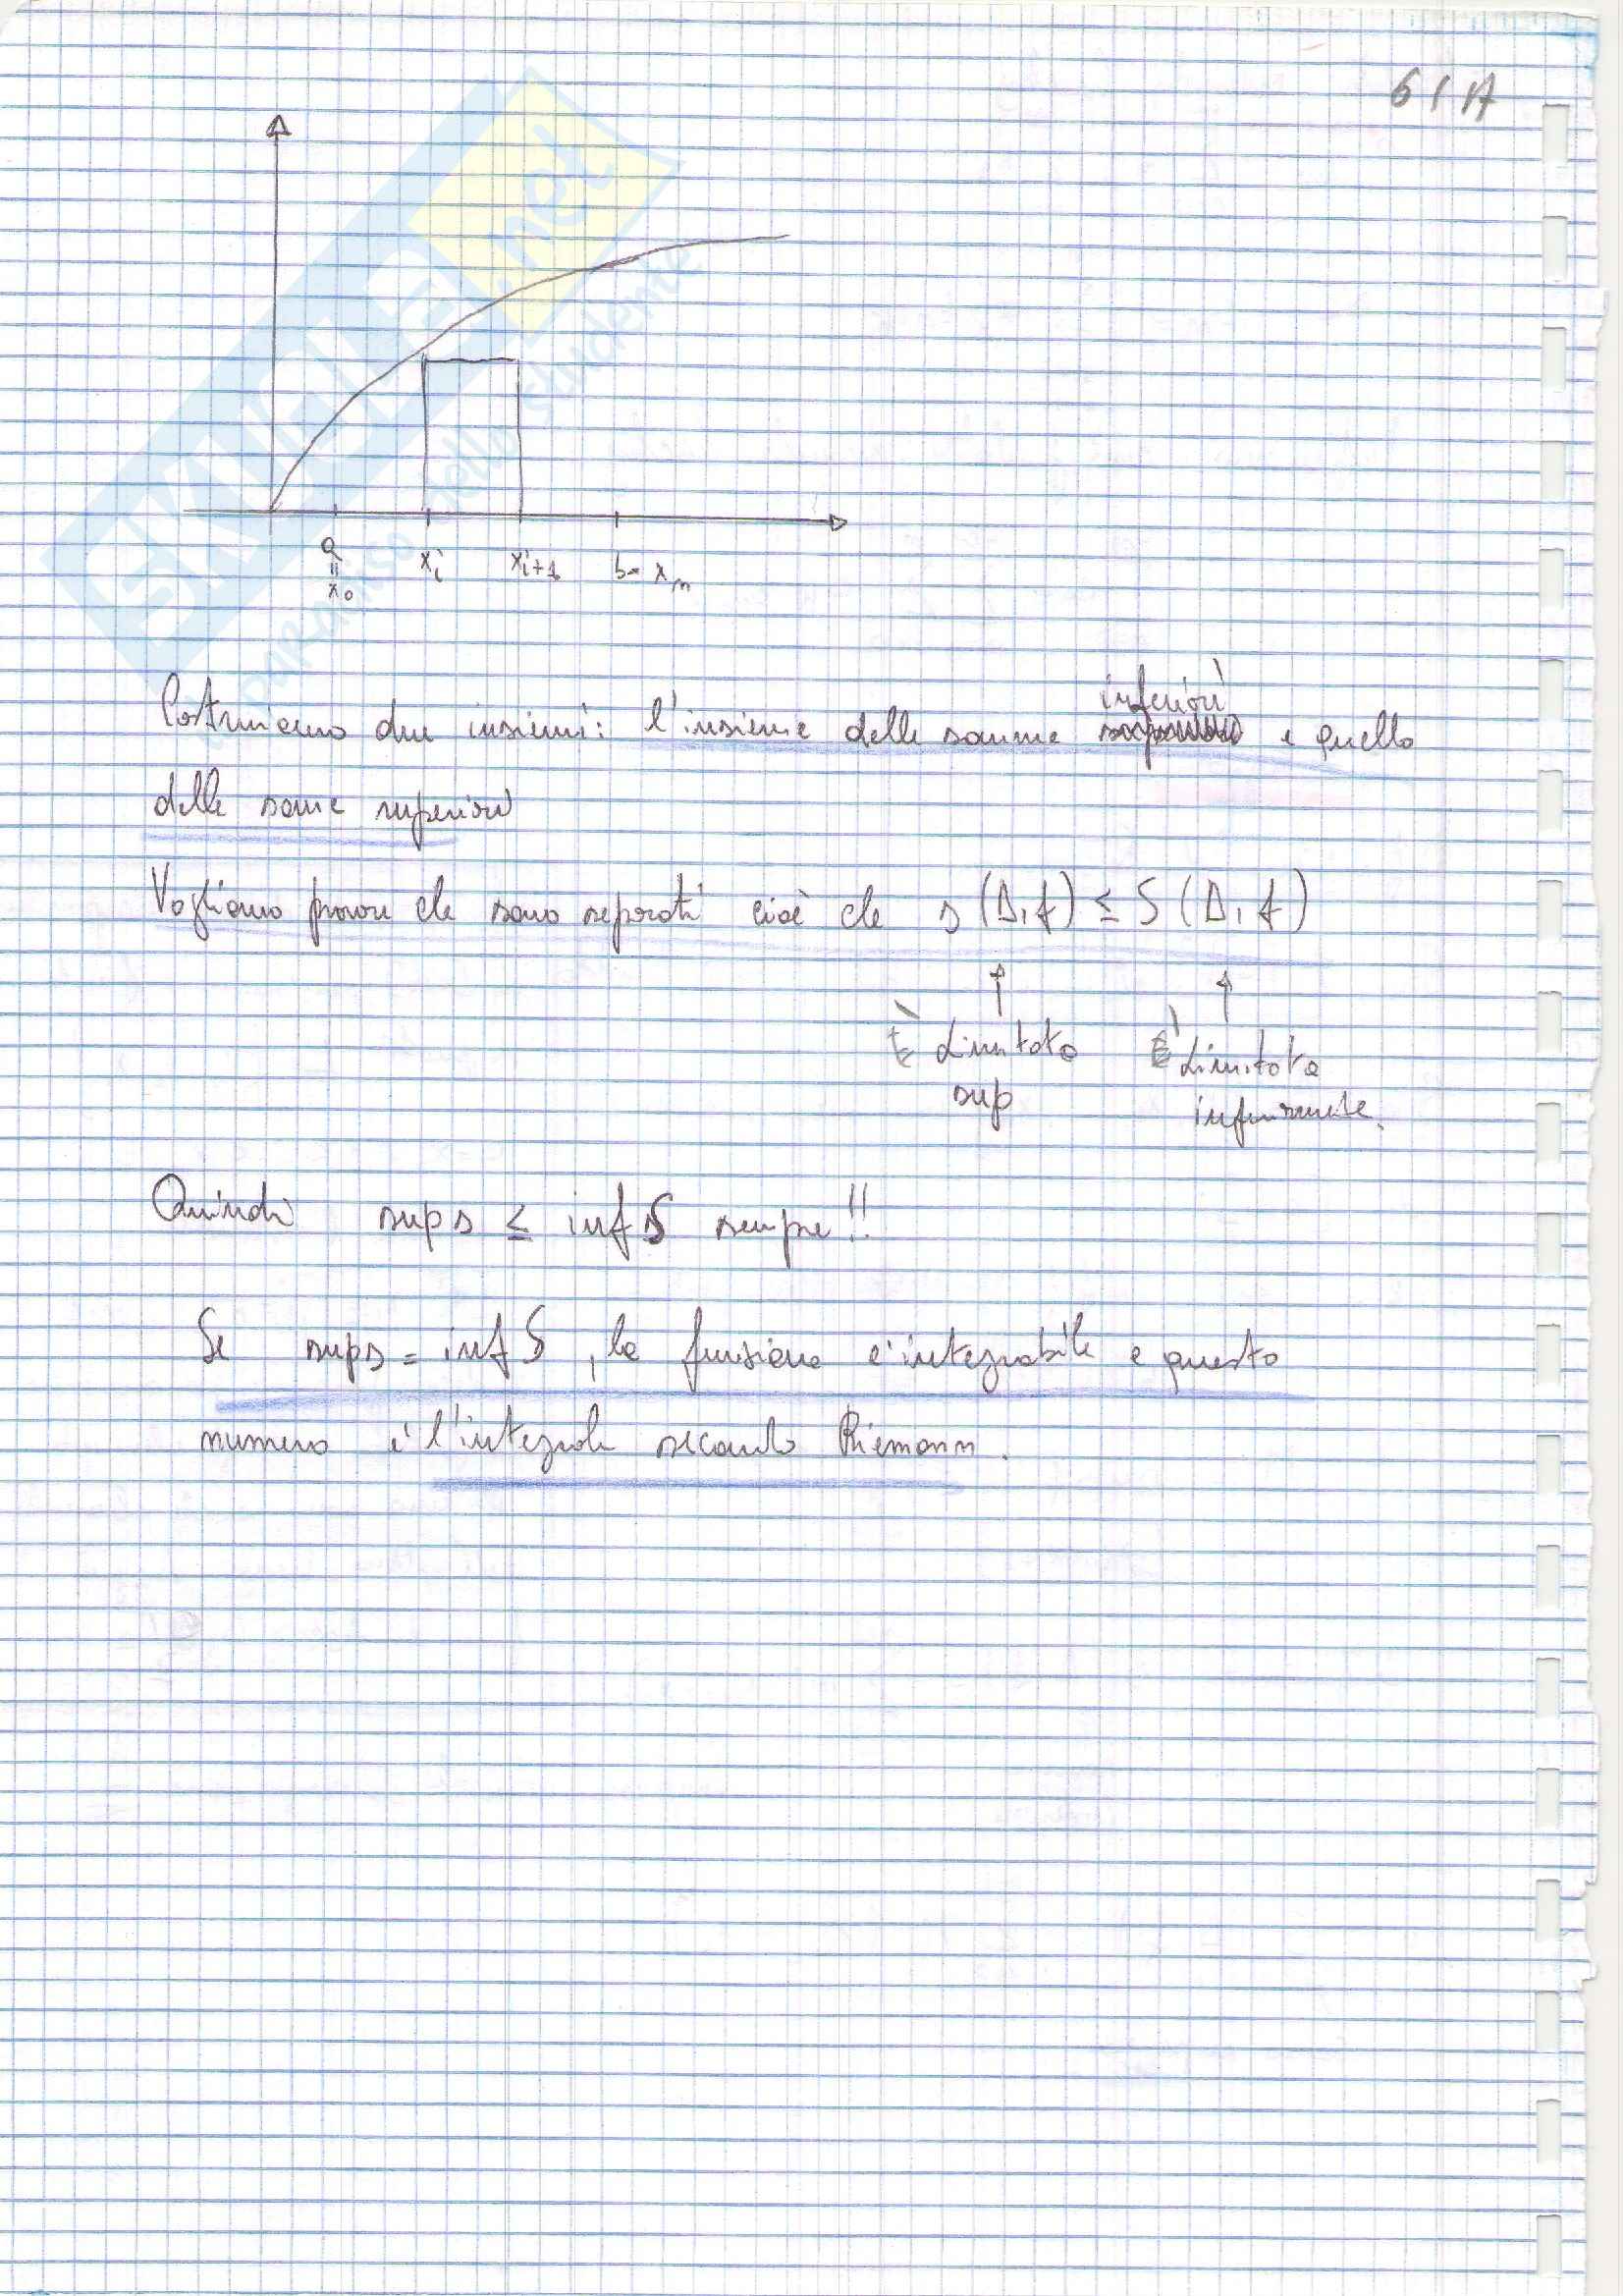 61A
SKUOLA.net
il paradiso dello studente
a
x₀
xᵢ
xᵢ₊₁
b = xₙ
inferiori
Costruiamo due insiemi: l'insieme delle somme e quello
delle some superiori
Vogliamo provare che sono separati cioè che s(Δ, f) ≤ S(Δ, f)
È Limitato
sup
È Limitata
inferiormente.
Quindi sup s ≤ inf S sempre!!
Se sup s = inf S, la funzione è integrabile e questo
numero è l'integrale secondo Riemann.